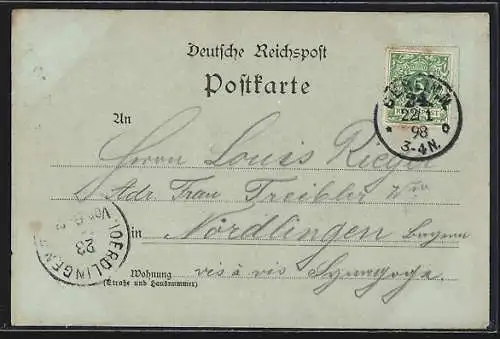 Deutsche Reichspost
Postkarte
BERLIN, N.
24
22 1
98
3-4N.
An
Herrn Louis Rieger
Adr. Frau Treibler Wwe
in Nördlingen Bayern
vis à vis Synagoge.
Wohnung
(Straße und Hausnummer)
NOERDLINGEN
23